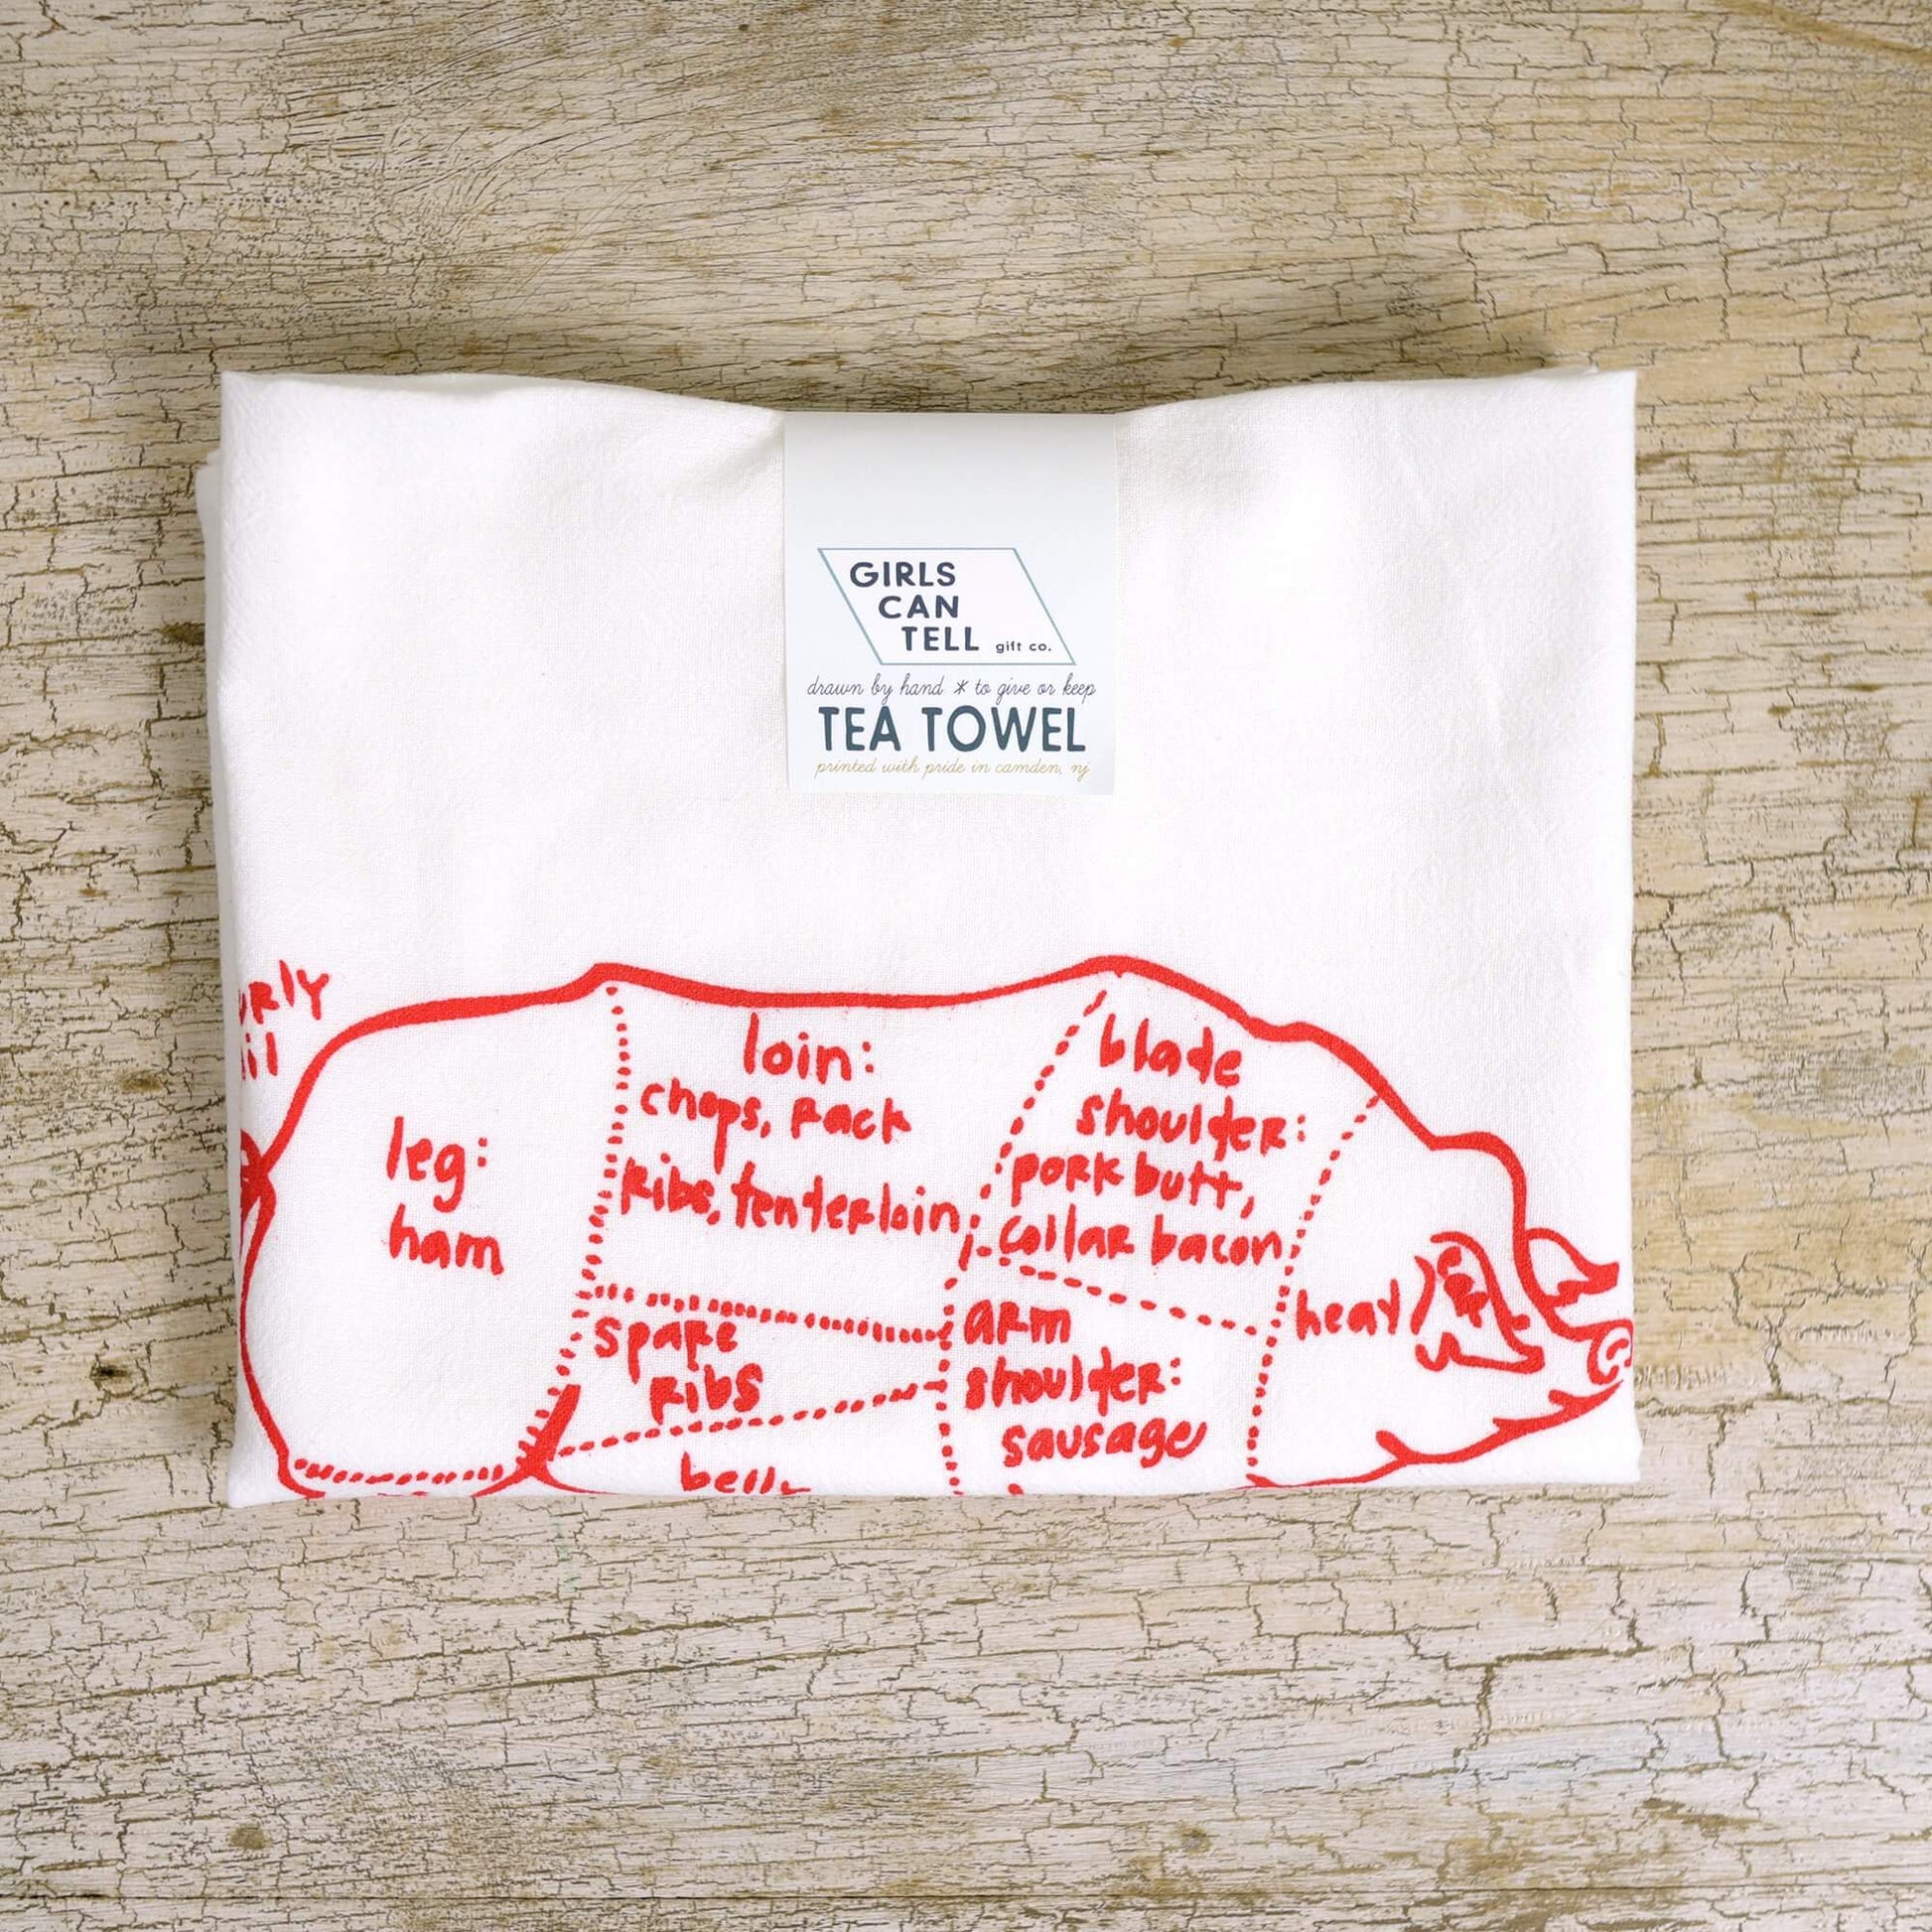 GIRLS
CAN
TELL gift co.
drawn by hand * to give or keep
TEA TOWEL
printed with pride in camden, nj
urly
il
loin:
chops, rack
ribs, tenderloin
blade
shoulder:
pork butt,
collar bacon
leg:
ham
head
spare
ribs
arm
shoulder:
sausage
belly